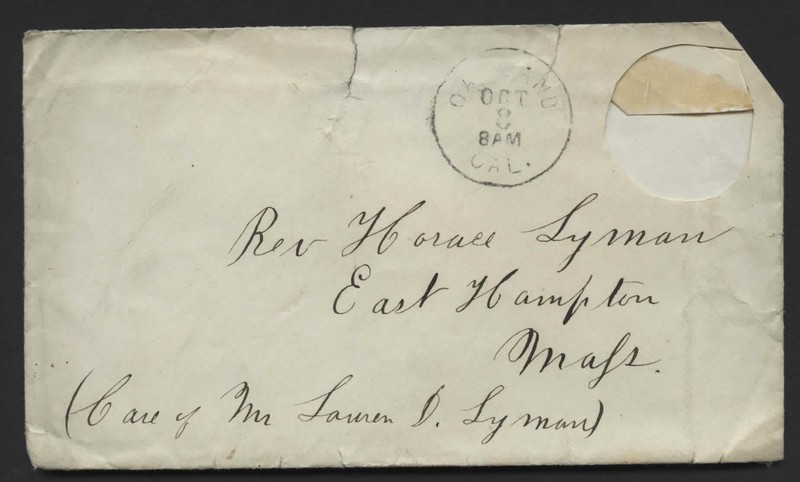 OAKLAND
OCT
8
8AM
CAL.
Rev Horace Lyman
East Hampton
Mass.
(Care of Mr Lauren D. Lyman)